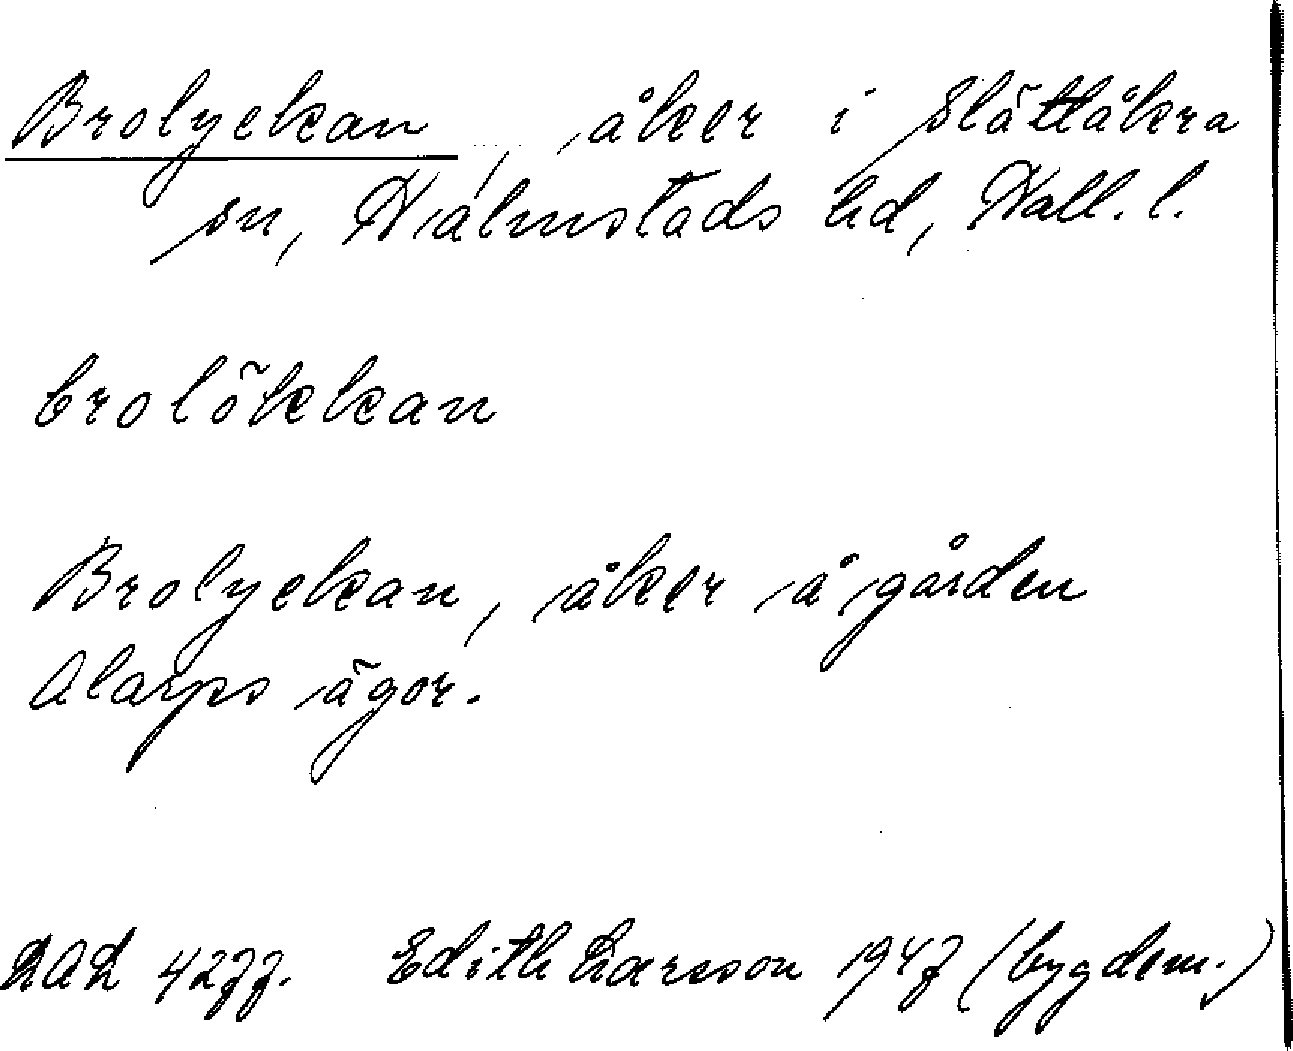 Brolyckan, åker i Slättåkra
sn, Halmstads hd, Hall. l.
brolökkan
Brolyckan, åker å gården
Alarps ägor.
LAL 4277. Edith Larsson 1947 (bygdem.)